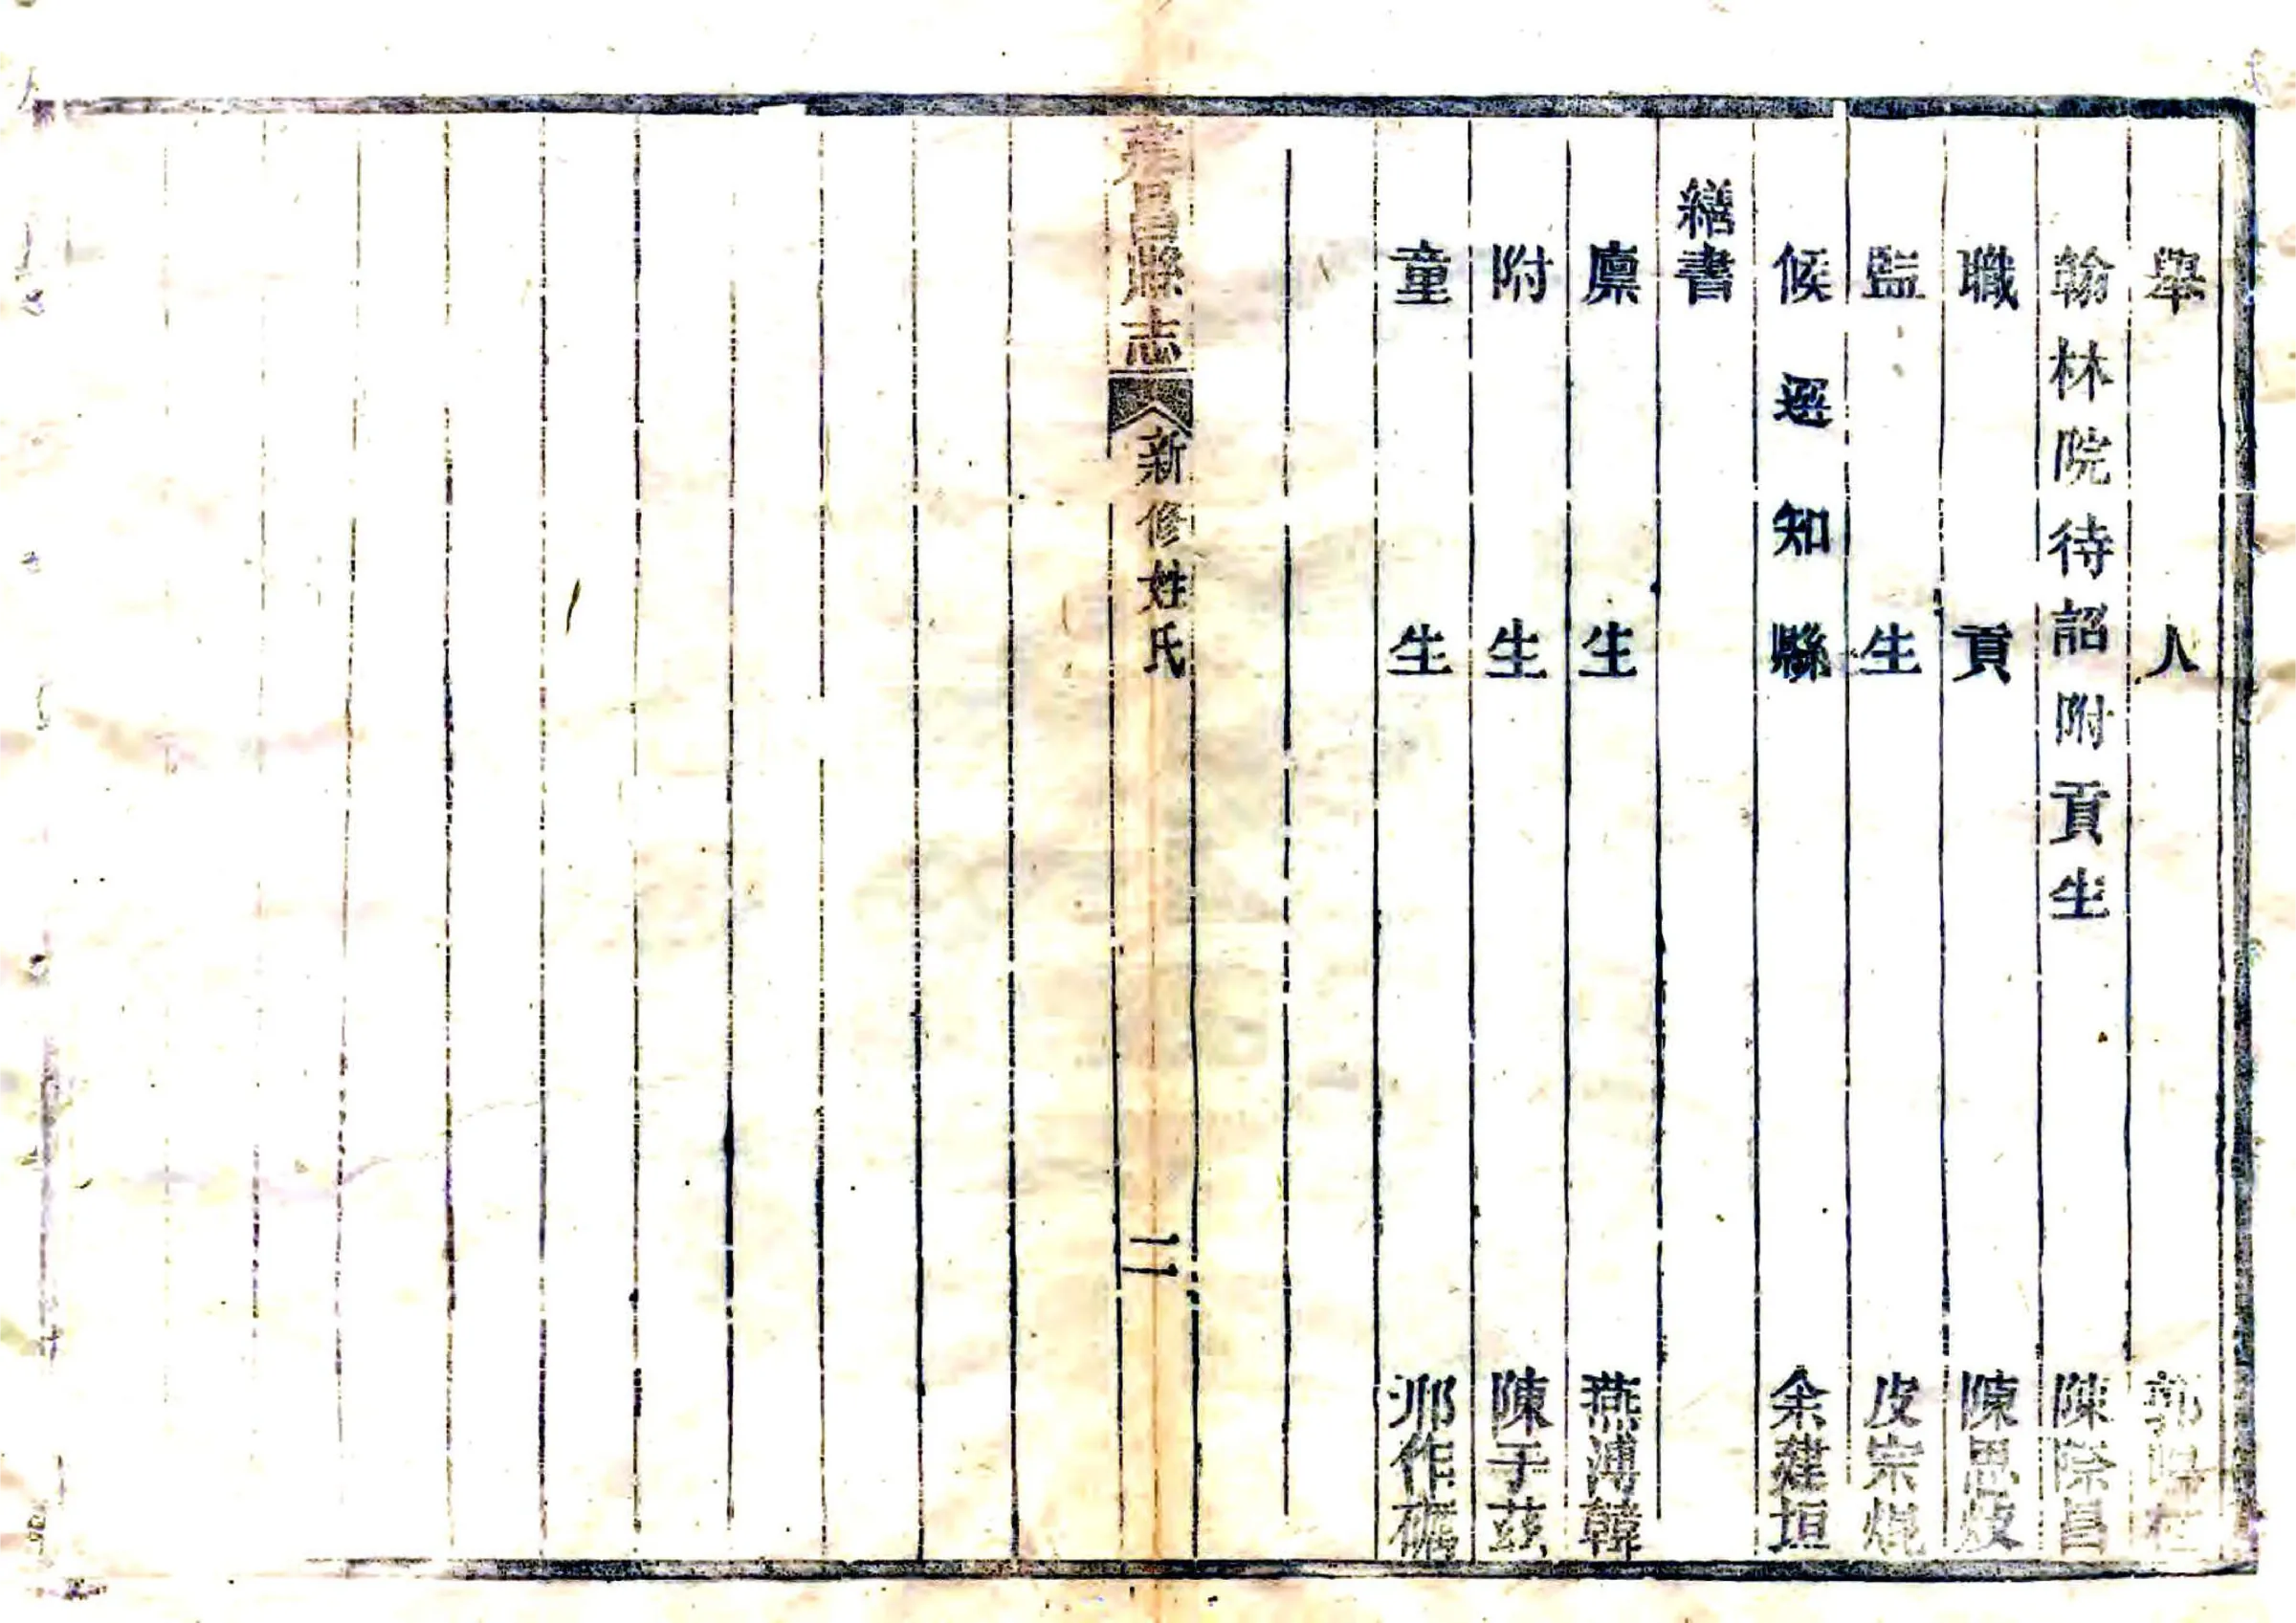 舉人 郭
翰林院待詔附貢生 陳際昌
職貢 陳思
監生 皮宗焜
候選知縣 余建垣
繕書
廩生 燕溥韓
附生 陳于茲
童生 邴作礪
建昌縣志 新修姓氏 二